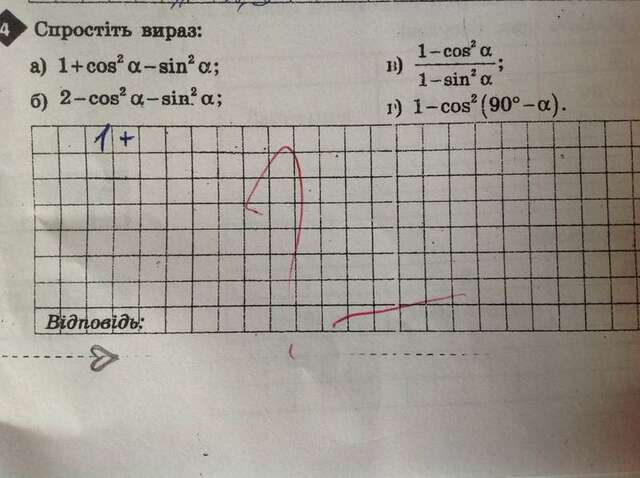 4 Спростіть вираз:
а) 1+cos² α−sin² α;
б) 2−cos² α−sin² α;
в) 1−cos² α / 1−sin² α;
г) 1−cos² (90°−α).
1 +
Відповідь: